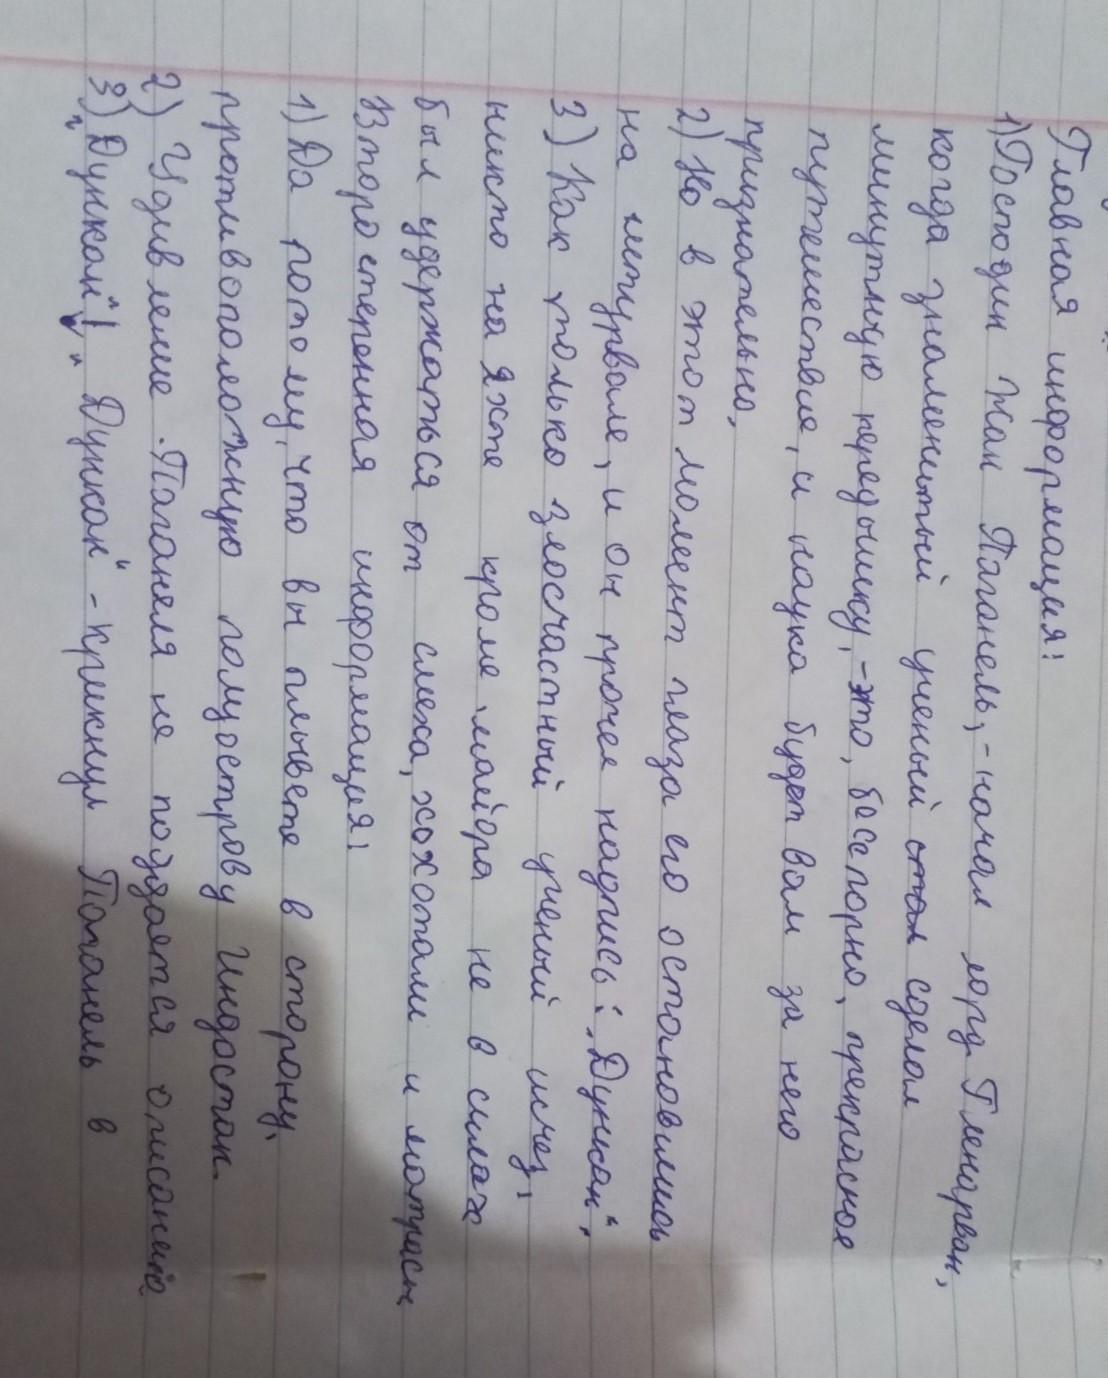 Главная информация:
1) Господин Жак Паганель, - начал лорд Гленарван,
когда знаменитый ученый сделал
минутную передышку, - это, бесспорно, прекрасное
путешествие, и наука будет вам за него
признательно,
2) Но в этот момент глаза его остановились
на штурвале, и он прочел надпись: „Дункан",
3) Как только злосчастный ученый исчез,
никто на яхте кроме майора не в силах
был удержаться от смеха, хохотали и матросы
Второстепенная информация:
1) Да потому, что вы плывете в сторону,
противоположную полуострову Индостан.
2) Удивление Паганеля не поддается описанию
3) „Дункан"! „Дункан" - крикнул Паганель в